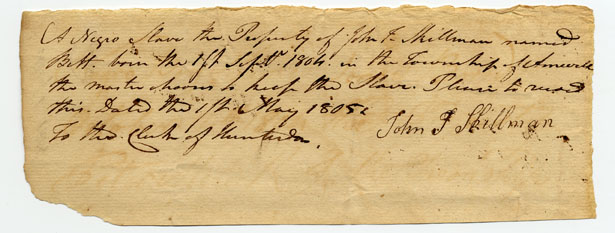 A Negro Slave the Property of John F Skillman named
Bett. born the 1st Sept.r 1804. in the Township of Amwell
the master chooses to keep the Slave. Please to record
this. Dated the 1st. May 1805
To the Clerk of Hunterdon.
John F Skillman